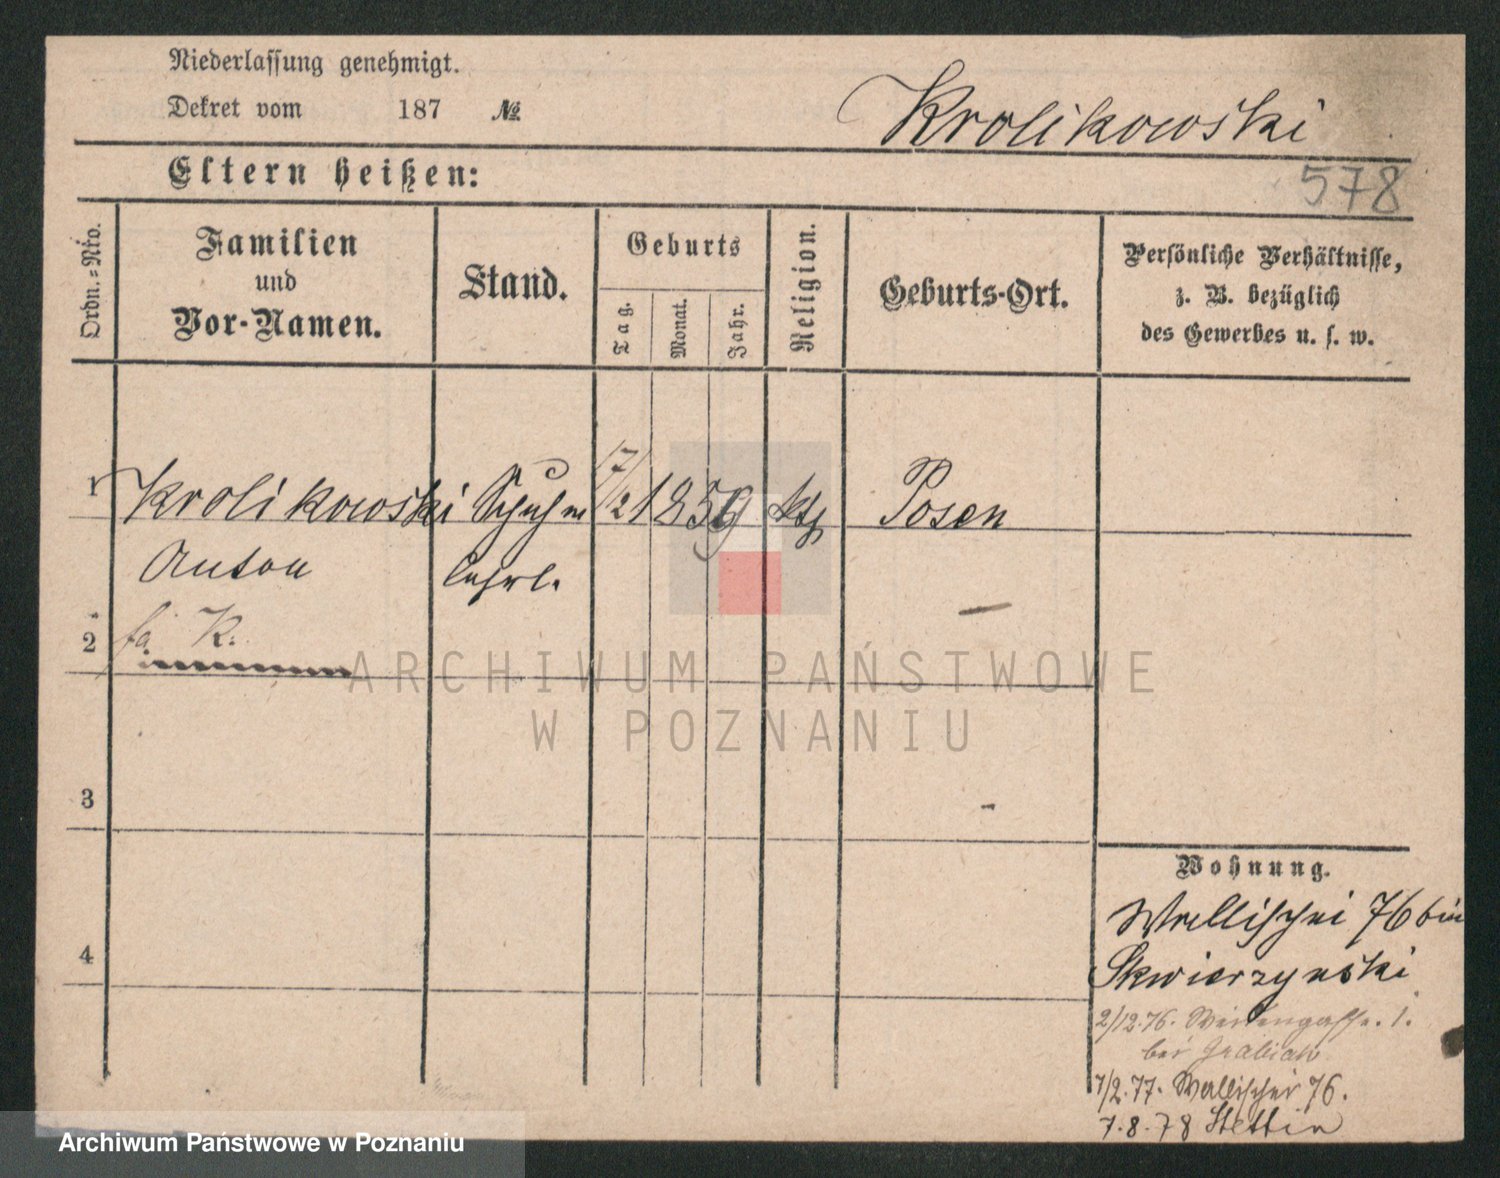 Niederlassung genehmigt.
Dekret vom 187 №
Krolikowski
Eltern heißen:
578
Ordn.=Nro.
Familien
und
Vor-Namen.
Stand.
Geburts
Tag.
Monat.
Jahr.
Religion.
Geburts-Ort.
Persönliche Verhältnisse,
z. B. bezüglich
des Gewerbes u. s. w.
1 Krolikowski Schuhm 17/12 1859 kth Posen
Anton lehrl.
2 fa K.
ARCHIWUM PAŃSTWOWE
W POZNANIU
3
Wohnung.
Wallischei 76 bei
4
Skwierzynski
2/12.76. Weidengasse. 1.
bei Grabiak
1/2.77. Wallischei 76.
7.8.78 Stettin
Archiwum Państwowe w Poznaniu